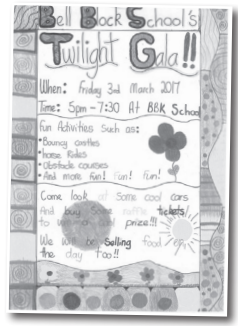 Bell Block School's
Twilight Gala!!
When: Friday 3rd March 2017
Time: 5pm - 7:30 At BBK School
Fun Activities Such as:
• Bouncy castles
• horse Rides
• Obstacle courses
• And more fun! fun! fun!
Come look at Some cool cars
And buy Some raffle tickets
to win cool prize!!!
We will be Selling food on
the day too!!